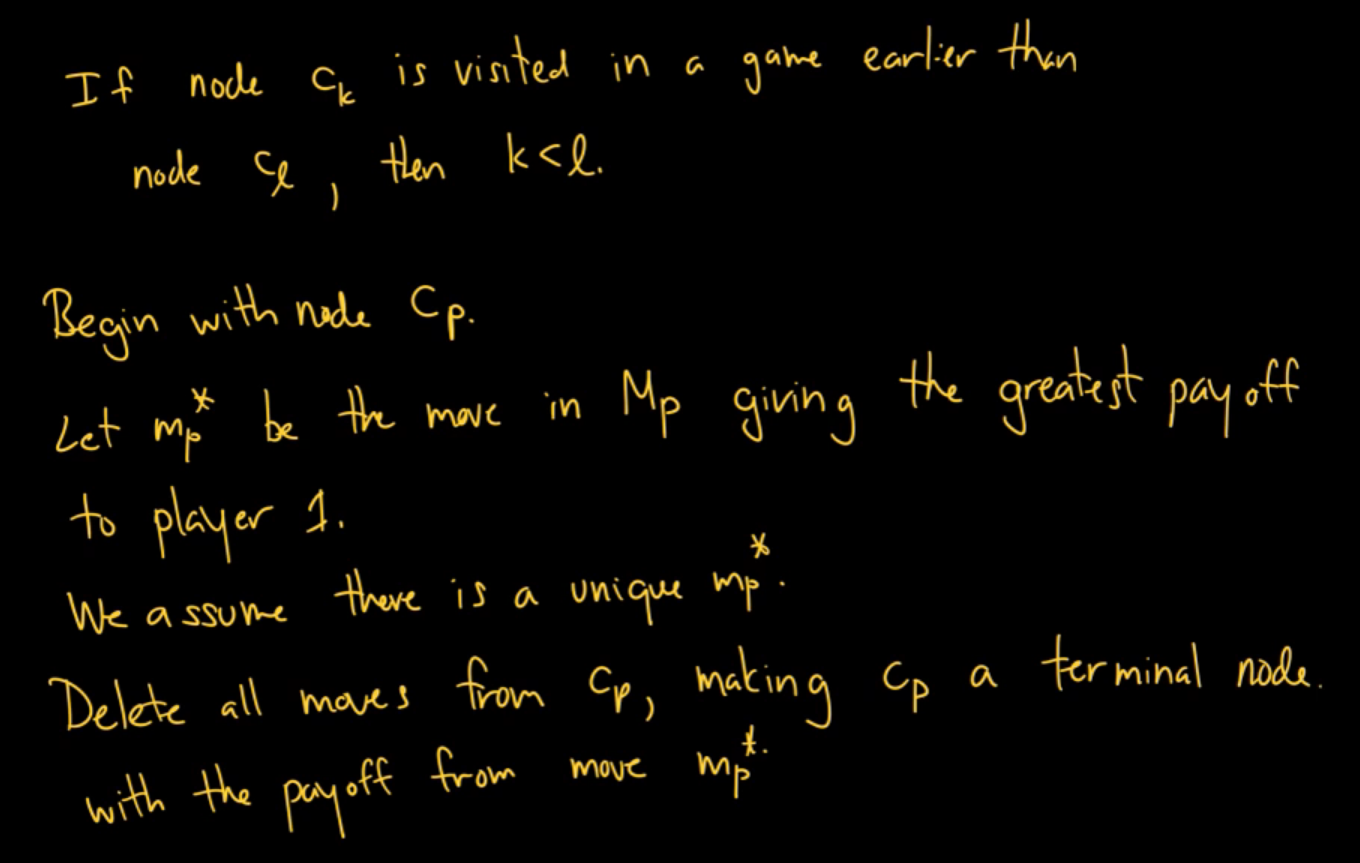 If node c_k is visited in a game earlier than
node c_l, then k<l.
Begin with node c_p.
Let m_p^* be the move in M_p giving the greatest payoff
to player 1.
We assume there is a unique m_p^*.
Delete all moves from c_p, making c_p a terminal node.
with the payoff from move m_p^*.